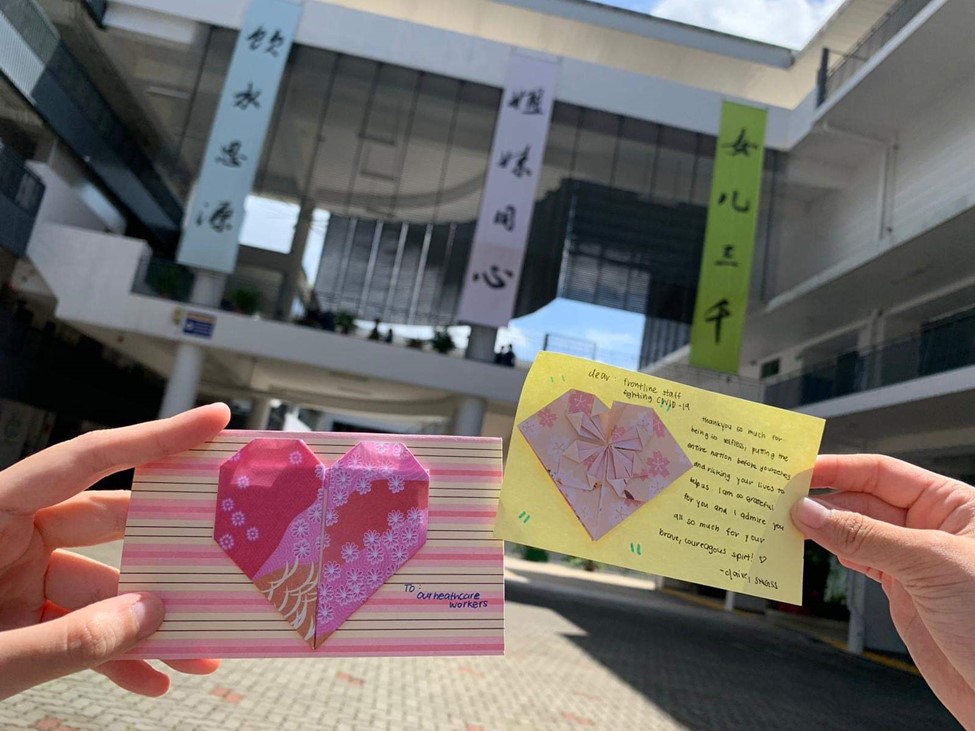 饮水思源
姐妹同心
女儿三千
dear : frontline staff
fighting COVID-19
thankyou so much for
being so selfless, putting the
entire nation before yourselves
and risking your lives to
help us. I am so grateful
for you and I admire you
all so much for your
brave, courageous spirit! ♡
-claire, SNGSS
To : ourheathcare
workers